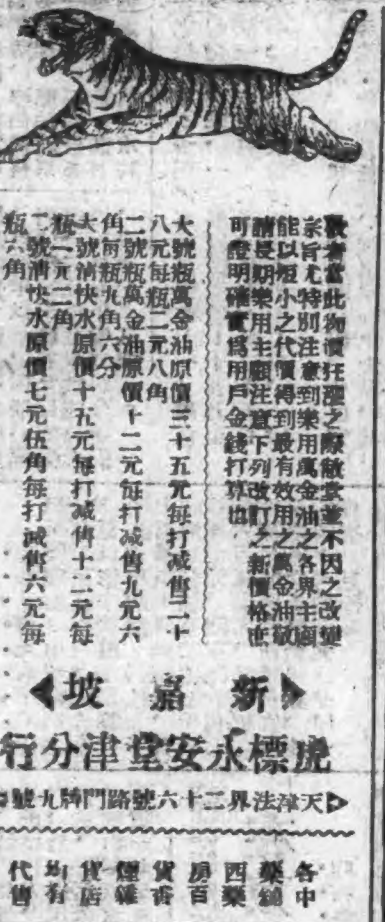 敬者當此物價狂漲之際敝堂並不因之改變
宗旨尤特別注意到樂用萬金油之各界主顧
能以短小之代價得到最有效用之萬金油敬
請長期樂用主顧注意下列改訂之新價格庶
可證明確實爲用戶金錢打算也
大號瓶萬金油原價三十五元每打減售二十
八元每瓶二元八角
二號瓶萬金油原價十二元每打減售九元六
角每瓶九角六分
大號清快水原價十五元每打減售十二元每
瓶一元二角
二號清快水原價七元伍角每打減售六元每
瓶六角
新嘉坡
虎標永安堂津分行
天津法界二十六號路門牌九號
各中
藥舖
西藥
房百
貨香
煙雜
貨店
均有
代售